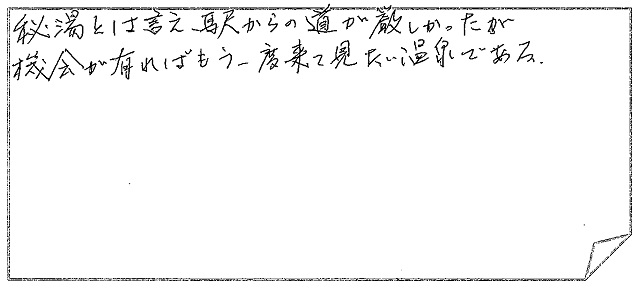 秘湯とは言え、駅からの道が厳しかったが
機会が有ればもう一度来て見たい温泉である.